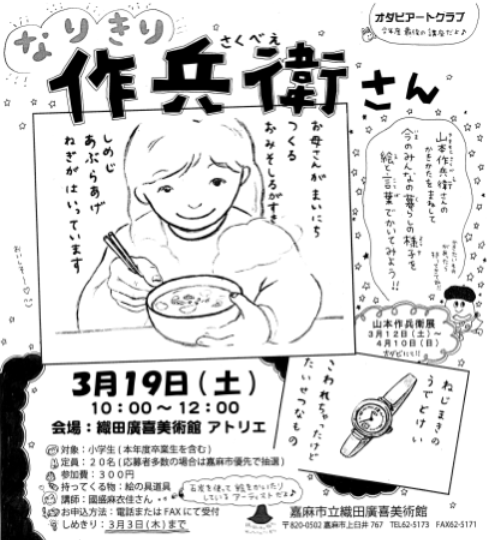 オダビアートクラブ
今年度最後の講座だよ♪
なりきり
さくべえ
作兵衛さん
山本作兵衛さんの
かきかたをまねして
今のみんなの暮らしの様子を
絵と言葉でかいてみよう!!
お母さんがまいにち
つくる
おみそしるがすき
しめじ
あぶらあげ
ねぎがはいっています
おいしそ〜
山本作兵衛展
3月12日(土)〜
4月10日(日)
オダビにて!!
3月19日(土)
10:00〜12:00
会場:織田廣喜美術館 アトリエ
ねじまきの
うでどけい
こわれちゃったけど
たいせつなもの
対象:小学生(本年度卒業生を含む)
定員:20名(応募者多数の場合は嘉麻市優先で抽選)
参加費:300円
持ってくる物:絵の具道具
講師:國盛麻衣佳さん
お申込方法:電話またはFAXにて受付
しめきり:3月3日(木)まで
石炭を使って絵をかいたり
しているアーティストだよ♪
嘉麻市立織田廣喜美術館
〒820-0502 嘉麻市上臼井767 TEL62-5173 FAX62-5171